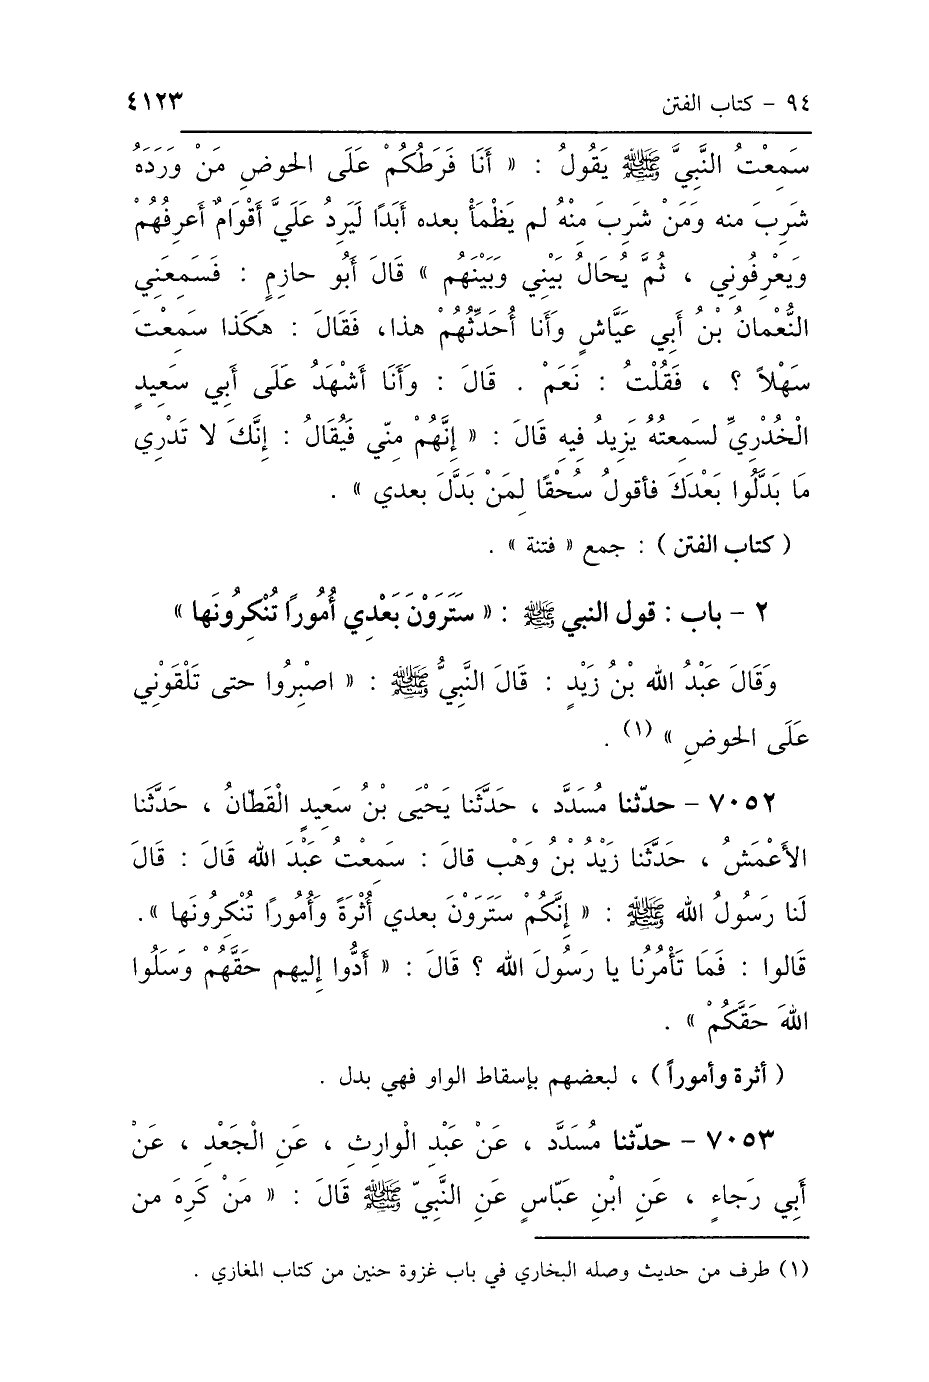 ٩٤ - كتاب الفتن
٤١٢٣
سَمِعْتُ النَّبِيَّ ﷺ يَقُولُ : « أَنَا فَرَطُكُمْ عَلَى الحوضِ مَنْ وَرَدَهُ
شَرِبَ منه وَمَنْ شَرِبَ مِنْهُ لم يَظْمَأْ بعده أَبَدًا لَيَرِدُ عَلَيَّ أَقْوَامٌ أَعرِفُهُمْ
وَيَعْرِفُوني ، ثُمَّ يُحَالُ بَيْنِي وَبَيْنَهُم » قَالَ أَبُو حازِمٍ : فَسَمِعَنِي
النُّعْمانُ بْنُ أَبي عَيَّاشٍ وَأَنا أُحَدِّثُهُمْ هذا، فَقَالَ : هَكَذا سَمِعْتَ
سَهْلاً ؟ ، فَقُلْتُ : نَعَمْ . قَالَ : وَأَنَا أَشْهَدُ عَلَى أَبي سَعِيدٍ
الْخُدْرِيِّ لسَمِعتُهُ يَزِيدُ فِيهِ قَالَ : « إِنَّهُمْ مِنّي فَيُقَالُ : إِنَّكَ لا تَدْرِي
مَا بَدَّلُوا بَعْدَكَ فأقولُ سُحْقًا لِمَنْ بَدَّلَ بعدي » .
( كتاب الفتن ) : جمع « فتنة » .
٢ - باب : قول النبي ﷺ : « سَتَرَوْنَ بَعْدِي أُمُوراً تُنْكِرُونَها »
وَقَالَ عَبْدُ الله بْنُ زَيْدٍ : قَالَ النَّبِيُّ ﷺ : « اصْبِرُوا حتى تَلْقَوْنِي
عَلَى الحوضِ » (١) .
٧٠٥٢ - حدّثنا مُسَدَّد ، حَدَّثَنا يَحْيَى بْنُ سَعِيدٍ الْقَطّانُ ، حَدَّثَنا
الأَعْمَشُ ، حَدَّثَنا زَيْدُ بْنُ وَهْب قالَ : سَمِعْتُ عَبْدَ الله قَالَ : قَالَ
لَنا رَسُولُ الله ﷺ : « إِنَّكُمْ سَتَرَوْنَ بعدي أُثْرَةً وَأُمُورًا تُنْكِرُونَها ».
قَالوا : فَمَا تَأْمُرُنا يا رَسُولَ الله ؟ قَالَ : « أَدُّوا إليهم حقَّهُمْ وَسَلُوا
اللهَ حَقَّكُمْ » .
( أثرة وأموراً ) ، لبعضهم بإسقاط الواو فهي بدل .
٧٠٥٣ - حدّثنا مُسَدَّد ، عَنْ عَبْدِ الْوارِثِ ، عَنِ الْجَعْدِ ، عَنْ
أَبِي رَجاءٍ ، عَنِ ابْنِ عَبّاسٍ عَنِ النَّبِيّ ﷺ قَالَ : « مَنْ كَرِهَ من
(١) طرف من حديث وصله البخاري في باب غزوة حنين من كتاب المغازي .